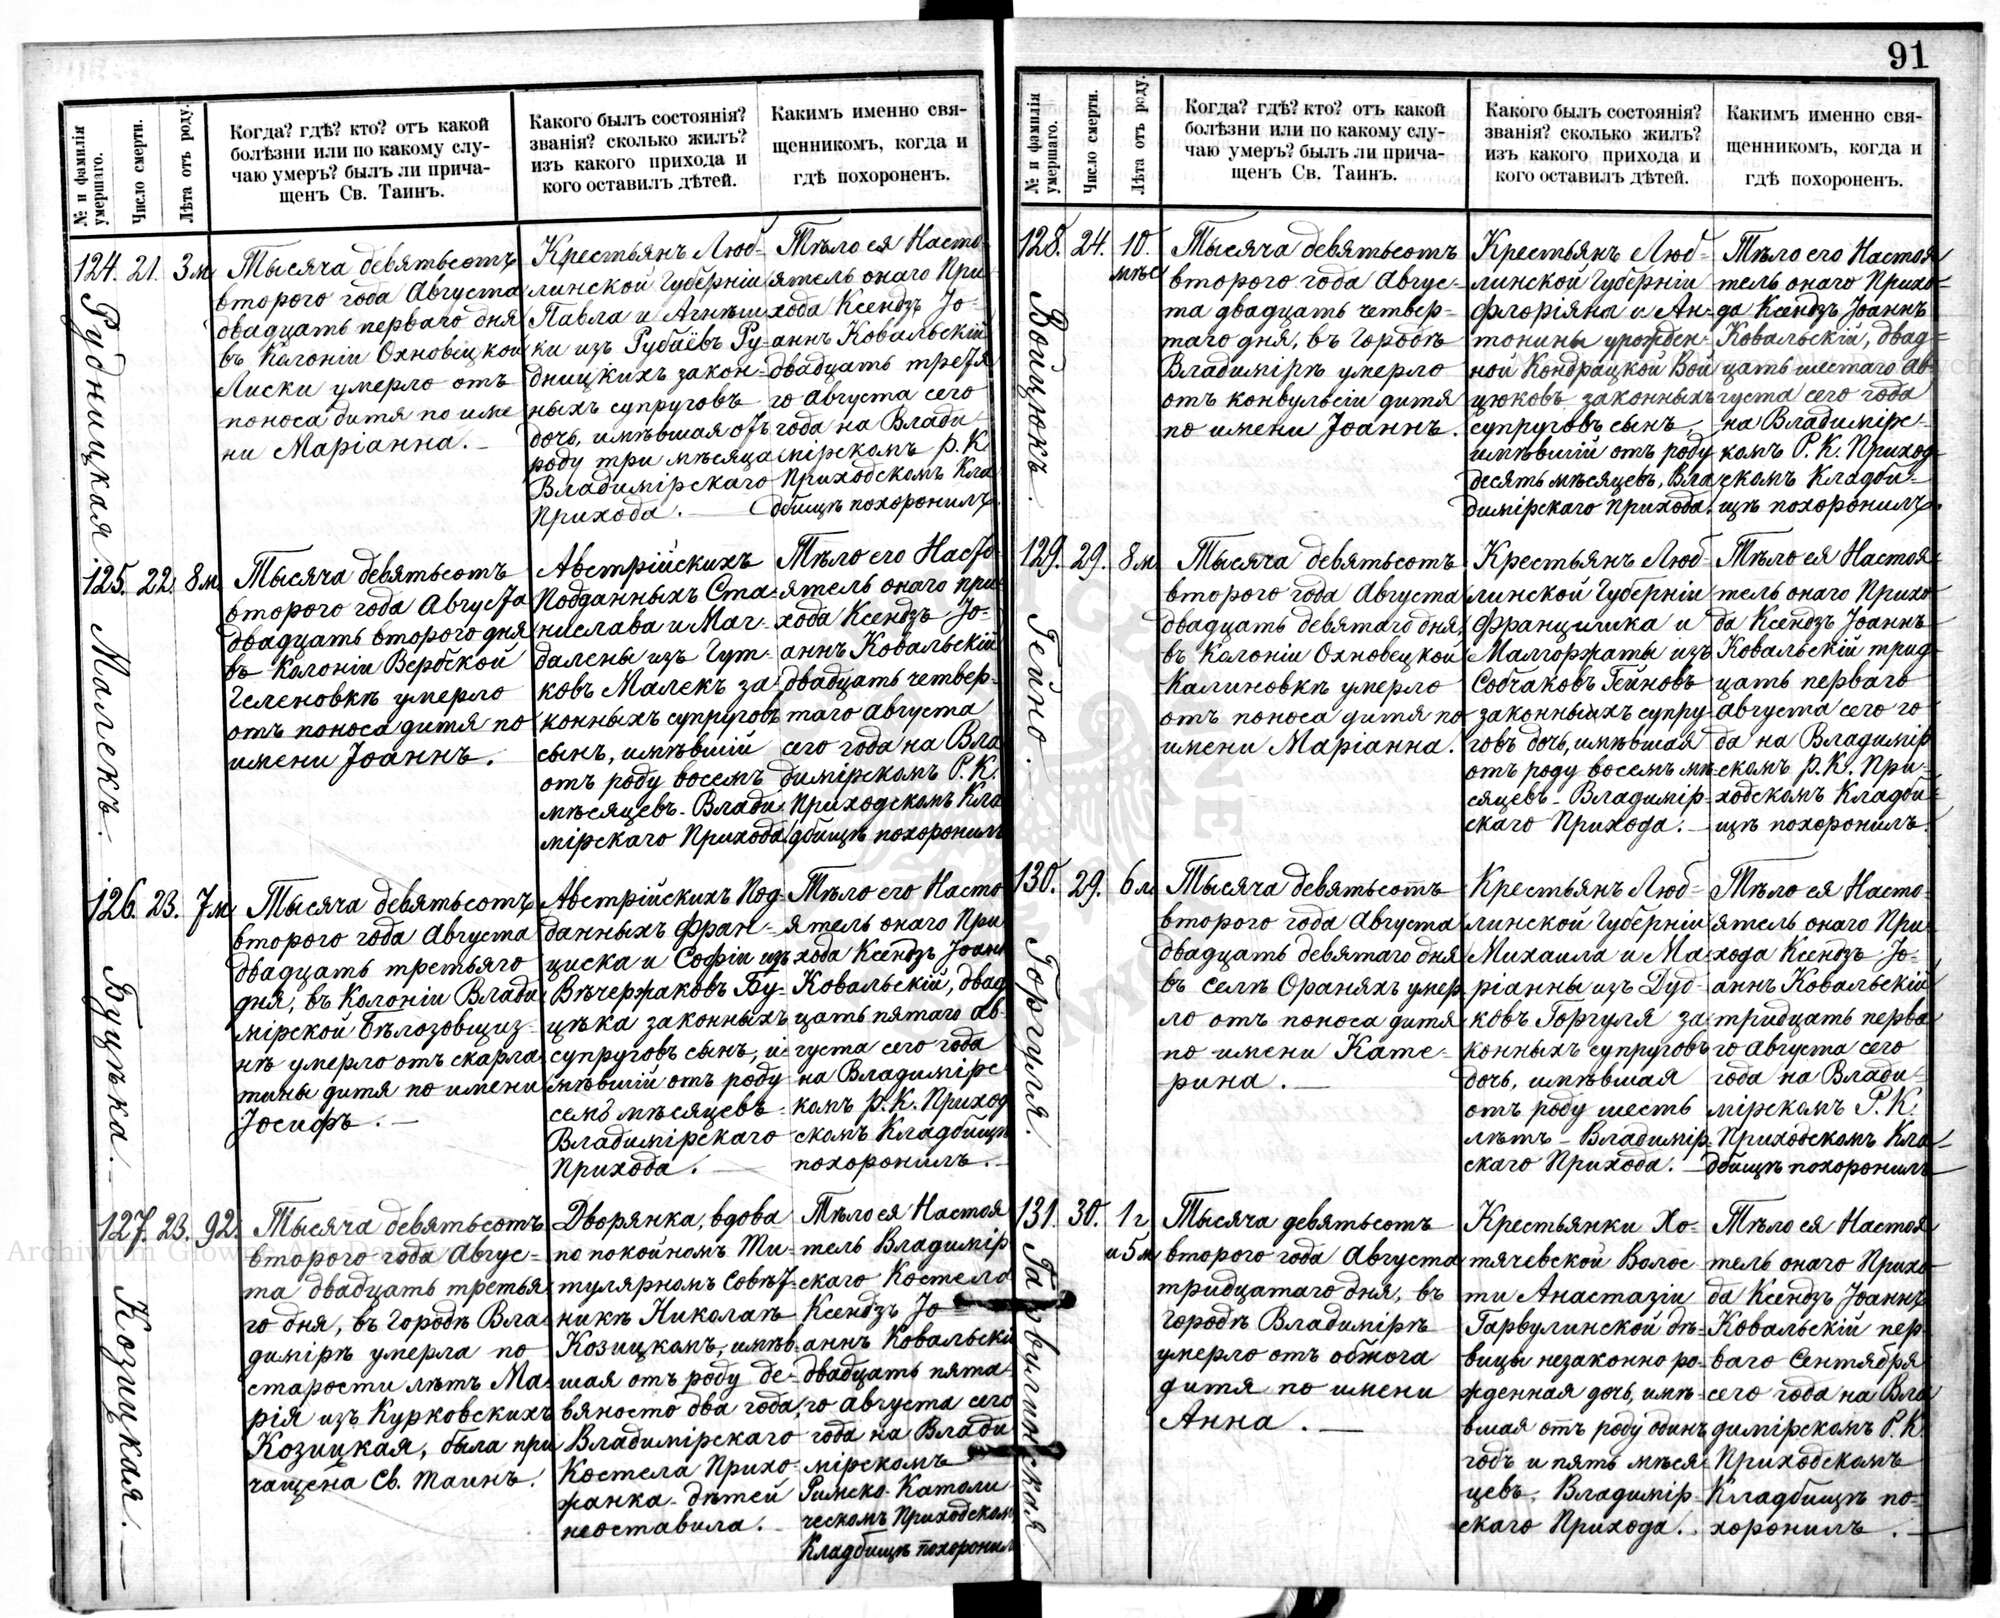 91
№ и фамилія умершаго.
Число смерти.
Лѣта отъ роду.
Когда? гдѣ? кто? отъ какой
болѣзни или по какому слу-
чаю умеръ? былъ ли прича-
щенъ Св. Таинъ.
Какого былъ состоянія?
званія? сколько жилъ?
изъ какого прихода и
кого оставилъ дѣтей.
Какимъ именно свя-
щенникомъ, когда и
гдѣ похороненъ.
124. 21. 3 м
Рудницкая.
Тысяча девятьсотъ
второго года Августа
двадцать перваго дня
въ Колоніи Охновецкой
Лиски умерло отъ
поноса дитя по име
ни Маріанна.
Крестьянъ Люб-
линской Губерніи
Павла и Агнѣш
ки изъ Рубаёвъ Ру-
дницкихъ закон-
ныхъ супруговъ
дочь, имѣвшая отъ
роду три мѣсяца
Владимірскаго
Прихода.
Тѣло ея Насто-
ятель онаго При-
хода Ксендзъ Іо-
аннъ Ковальскій
двадцать третья
го Августа сего
года на Влади-
мірскомъ Р. К.
Приходскомъ Кла
дбищѣ похоронилъ.
125. 22. 8 м
Малекъ.
Тысяча девятьсотъ
второго года Августа
двадцать второго дня
въ Колоніи Вербской
Геленовкѣ умерло
отъ поноса дитя по
имени Іоаннъ.
Австрійскихъ
Подданныхъ Ста-
нислава и Маг-
далены изъ Гут-
ковъ Малекъ за-
конныхъ супруговъ
сынъ, имѣвшій
отъ роду восемъ
мѣсяцевъ. Влади
мірскаго Прихода
Тѣло его Насто-
ятель онаго при-
хода Ксендзъ Іо-
аннъ Ковальскій
двадцать четвер-
таго Августа
сего года на Вла
димірскомъ Р. К.
Приходскомъ Кла
дбищѣ похоронилъ
126. 23. 7 м
Буцѣка.
Тысяча девятьсотъ
второго года Августа
двадцать третьяго
дня, въ Колоніи Влади
мірской Бѣлозовщиз-
нѣ умерло отъ скарла
тины дитя по имени
Іосифъ.
Австрійскихъ Под-
данныхъ Фран-
циска и Софіи изъ
Вѣчержаковъ Бу-
цѣка законныхъ
супруговъ сынъ, и-
мѣвшій отъ роду
семь мѣсяцевъ
Владимірскаго
Прихода.
Тѣло его Насто
ятель онаго При
хода Ксендзъ Іоанн
Ковальскій, двад
цать пятаго Ав-
густа сего года
на Владимірс-
комъ Р. К. Приход
скомъ Кладбищѣ
похоронилъ.
127. 23. 92.
Козицкая.
Тысяча девятьсотъ
второго года Авгус-
та двадцать третья
го дня, въ Городѣ Вла
димірѣ умерла по
старости лѣтъ Ма
рія изъ Курковскихъ
Козицкая, была при
чащена Св. Таинъ.
Дворянка, вдова
по покойномъ Ти-
тулярномъ Совѣт-
никѣ Николаѣ
Козицкомъ, имѣв
шая отъ роду де-
вяносто два года,
Владимірскаго
Костела Прихо-
жанка. дѣтей
неоставила.
Тѣло ея Настоя
тель Владимір
скаго Костела
Ксендзъ Іо-
аннъ Ковальскій
двадцать пята-
го Августа сего
года на Влади
мірскомъ
Римско-Католи
ческомъ Приходском
Кладбищѣ похоронил
№ и фамилія умершаго.
Число смерти.
Лѣта отъ роду.
Когда? гдѣ? кто? отъ какой
болѣзни или по какому слу-
чаю умеръ? былъ ли прича-
щенъ Св. Таинъ.
Какого былъ состоянія?
званія? сколько жилъ?
изъ какого прихода и
кого оставилъ дѣтей.
Какимъ именно свя-
щенникомъ, когда и
гдѣ похороненъ.
128. 24. 10. мѣс
Войцюкъ.
Тысяча девятьсотъ
второго года Авгус-
та двадцать четвер-
таго дня, въ Городѣ
Владимірѣ умерло
отъ конвульсіи дитя
по имени Іоаннъ.
Крестьянъ Люб-
линской Губерніи
Флоріяна и Ан-
тонины урожден-
ной Кондрацкой Вой
цюковъ законныхъ
супруговъ сынъ,
имѣвшій отъ роду
десять мѣсяцевъ, Вла
димірскаго Прихода.
Тѣло его Настоя
тель онаго Прихо-
да Ксендзъ Іоаннъ
Ковальскій, двад-
цать шестаго Ав-
густа сего года
на Владимірс-
комъ Р. К. Приход
скомъ Кладби-
щѣ похоронилъ.
129. 29. 8 м
Гейно.
Тысяча девятьсотъ
второго года Августа
двадцать девятаго дня,
въ Колоніи Охновецкой
Калиновкѣ умерло
отъ поноса дитя по
имени Маріанна.
Крестьянъ Люб-
линской Губерніи
Францишка и
Малгоржаты изъ
Собчаковъ Гейновъ
законныхъ супру-
говъ дочь, имѣвшая
отъ роду восемь мѣ-
сяцевъ. Владимір-
скаго Прихода.
Тѣло ея Настоя-
тель онаго Прихо
да Ксендзъ Іоаннъ
Ковальскій трид-
цать перваго
Августа сего го
да на Владимір
скомъ Р. К. При-
ходскомъ Кладби-
щѣ похоронилъ.
130. 29. 6 л
Горгуля.
Тысяча девятьсотъ
второго года Августа
двадцать девятаго дня
въ селѣ Ораняхъ умер
ло отъ поноса дитя
по имени Кате-
рина.
Крестьянъ Люб-
линской Губерніи
Михаила и Ма
ріанны изъ Дуд-
ковъ Горгуля за
конныхъ супруговъ
дочь, имѣвшая
отъ роду шесть
лѣтъ. Владимір
скаго Прихода.
Тѣло ея Насто-
ятель онаго При-
хода Ксендзъ Іо-
аннъ Ковальскій
тридцать перва
го Августа сего
года на Влади-
мірскомъ Р. К.
Приходскомъ Кла-
дбищѣ похоронилъ
131. 30. 1 г и 5 м
Тысяча девятьсотъ
второго года Августа
тридцатаго дня, въ
Городѣ Владимірѣ
умерло отъ обжога
дитя по имени
Анна.
Крестьянки Хо-
тячевской Волос
ти Анастазіи
Гарвулинской дѣ-
вицы незаконно ро-
жденная дочь, имѣ-
вшая отъ роду одинъ
годъ и пять мѣся
цевъ, Владимір-
скаго Прихода.
Тѣло ея Настоя
тель онаго Прихо-
да Ксендзъ Іоаннъ
Ковальскій пер-
ваго Сентября
сего года на Вла
димірскомъ Р. К.
Приходскомъ
Кладбищѣ по-
хоронилъ.